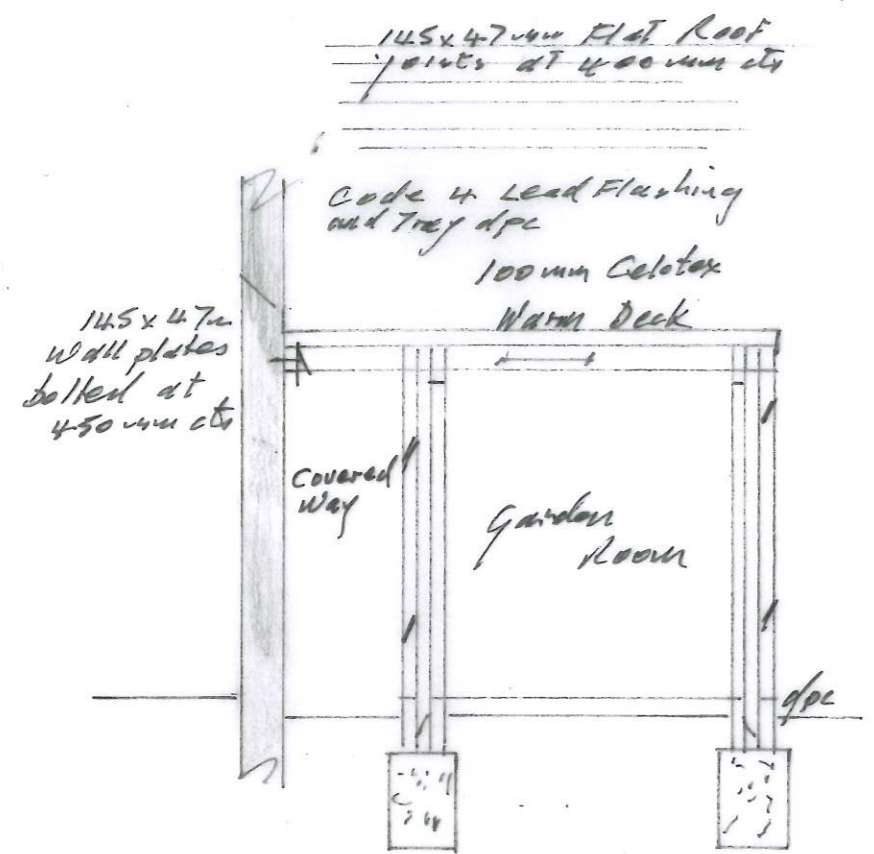 145x47mm Flat Roof
joists at 400mm cts
Code 4 Lead Flashing
and Tray dpc
100mm Celotex
Warm Deck
145x47m
Wall plates
bolted at
450mm cts
Covered
Way
Garden
Room
dpc